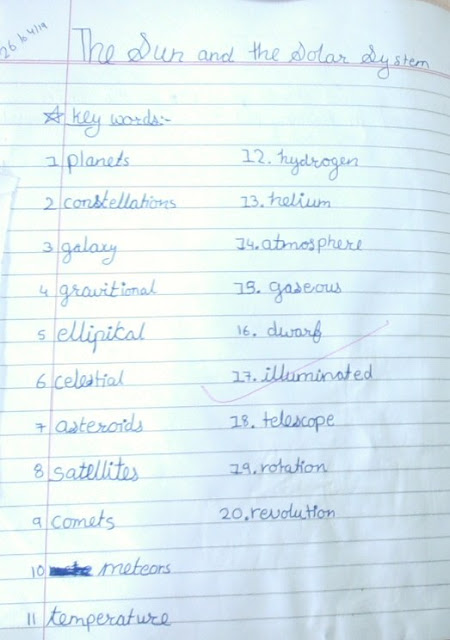 26/04/19
The Sun and the Solar System
☆ Key words:-
1 planets
2 constellations
3 galaxy
4 gravitional
5 ellipikal
6 celestial
7 asteroids
8 satellites
9 comets
10 meteors
11 temperature
12. hydrogen
13. helium
14. atmosphere
15. gaseous
16. dwarf
17. illuminated
18. telescope
19. rotation
20. revolution